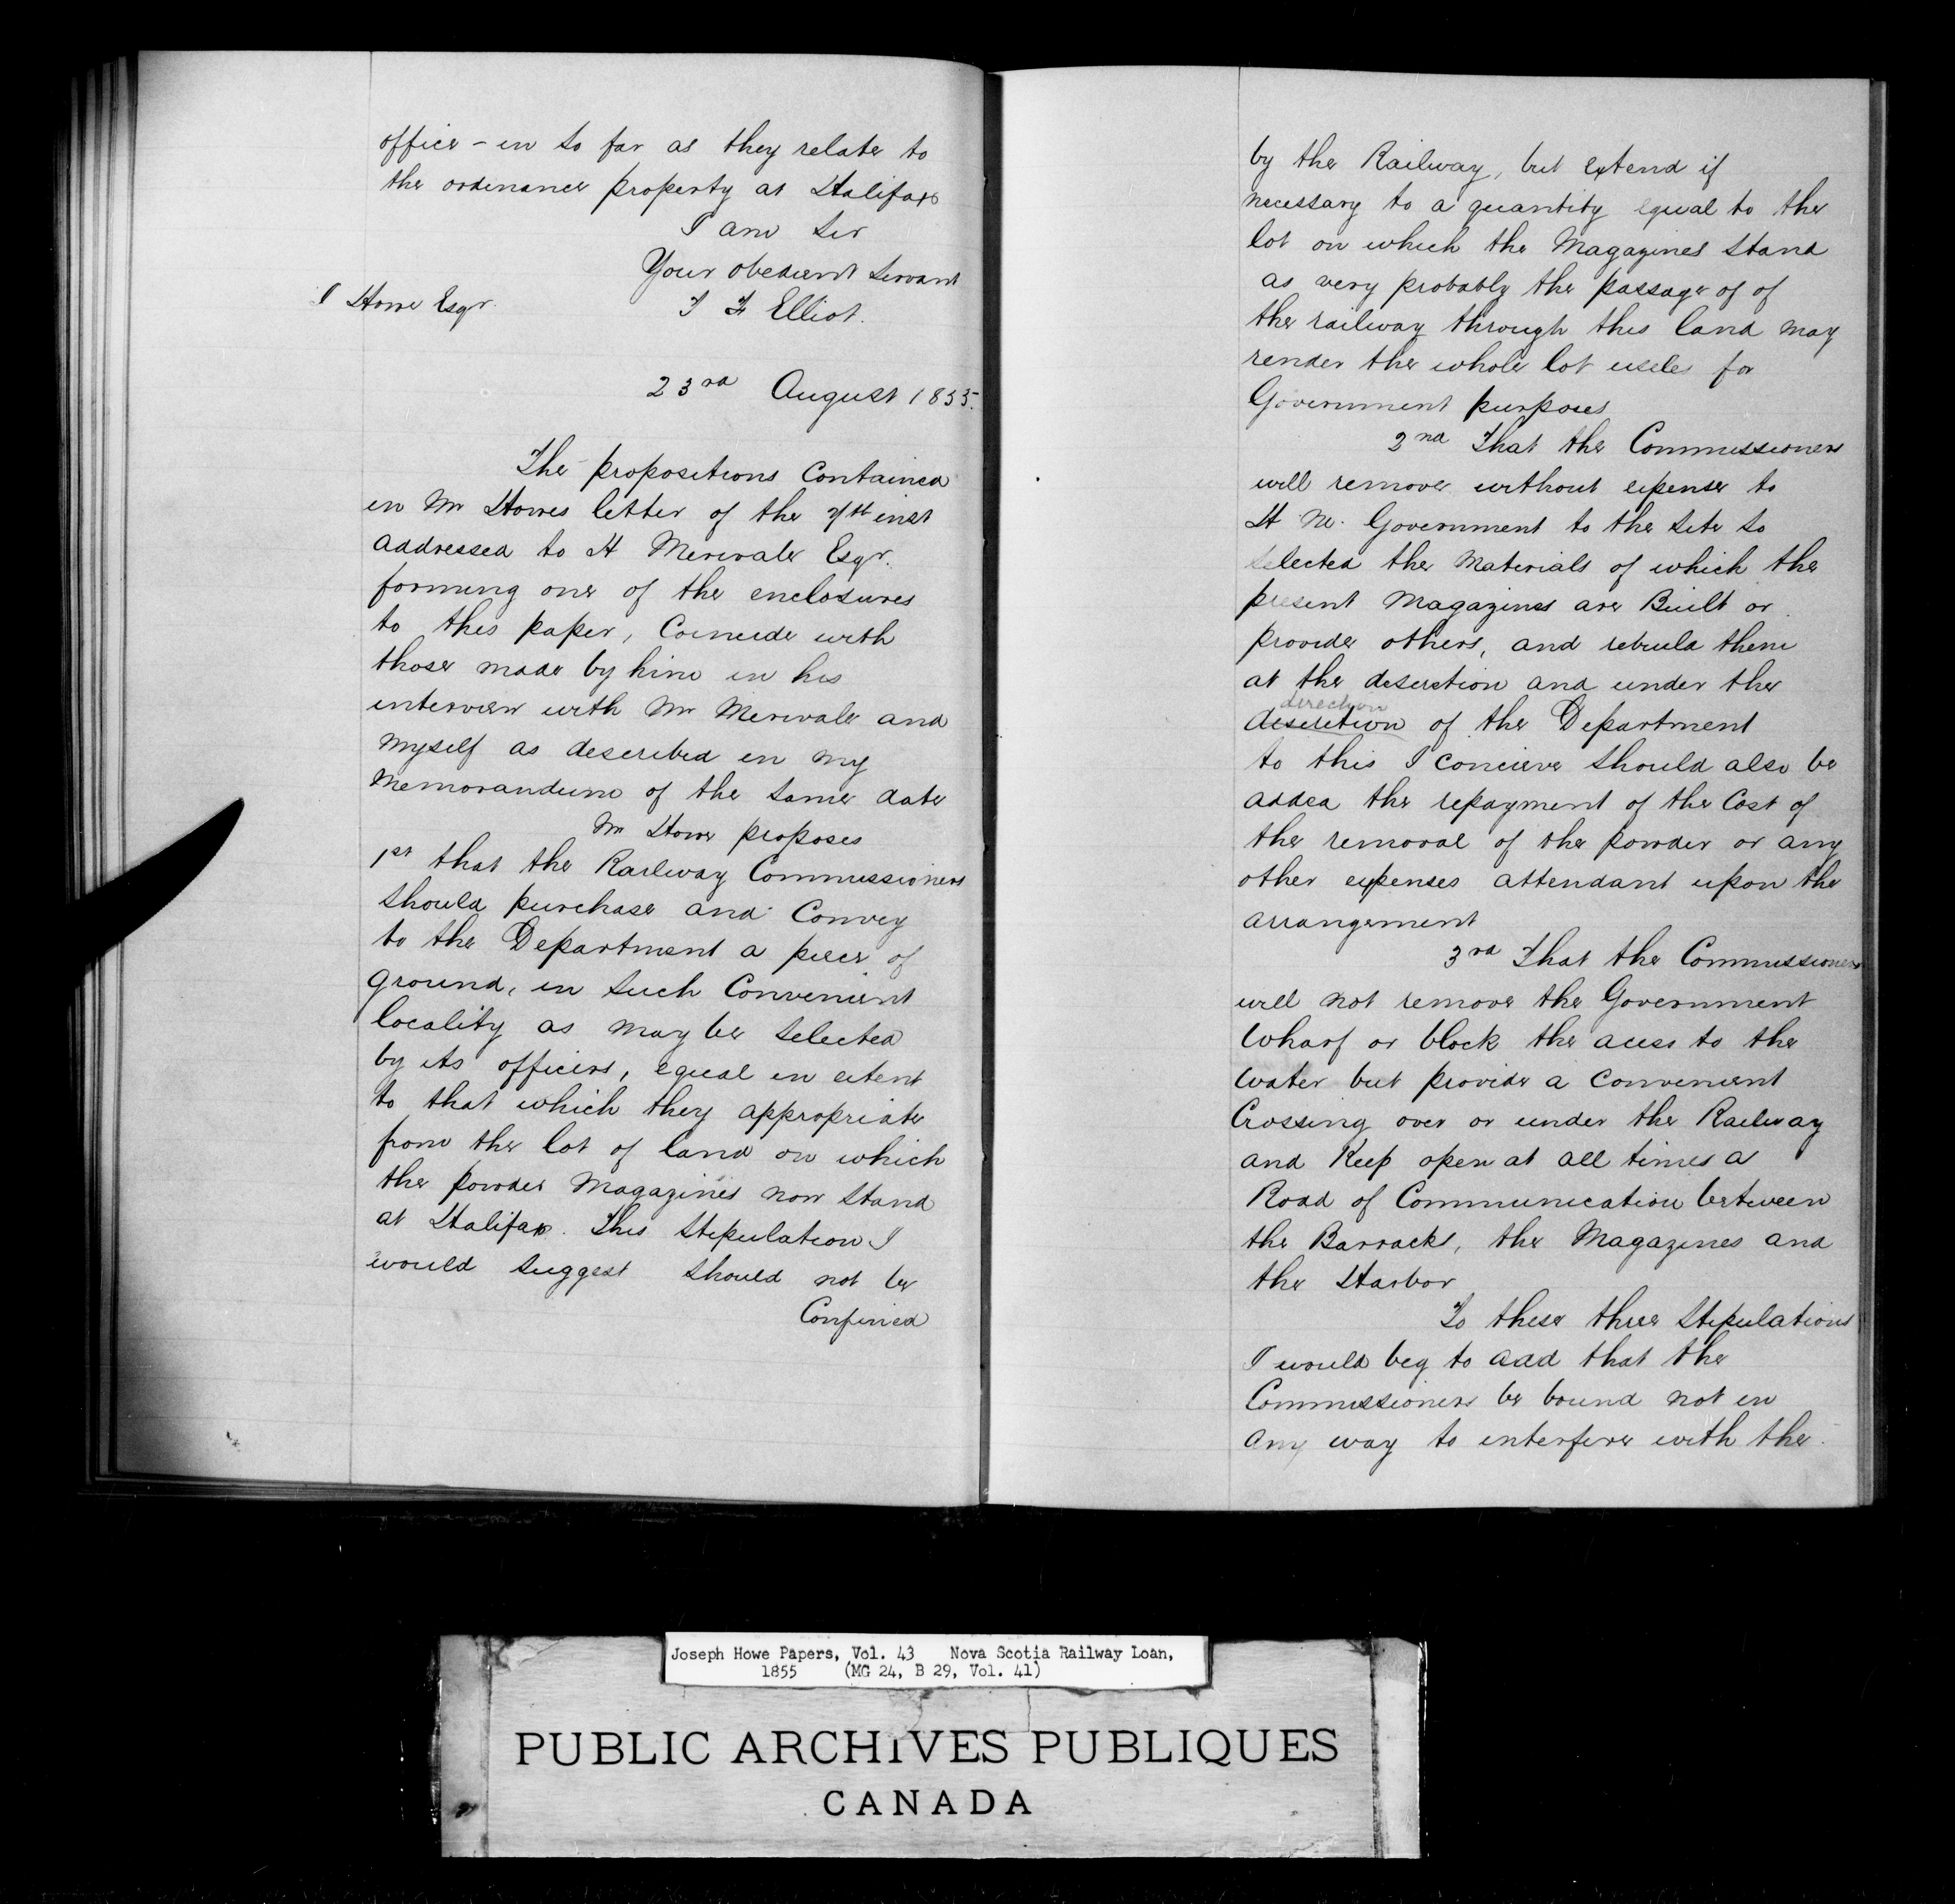 office - in so far as they relate to
the ordinance property at Halifax
I am Sir
Your obedient Servant
J Howe Esqr.
T F Elliot.
23rd August 1855.
The propositions Contained
in Mr Howes letter of the 7th inst
addressed to H Merivale Esqr.
forming one of the enclosures
to this paper, Coincide with
those made by him in his
interview with Mr Merivale and
Myself as described in my
Memorandum of the same date
Mr Howe proposes
1st that the Railway Commissioners
should purchase and Convey
to the Department a piece of
ground, in such Convenient
locality as may be selected
by its officers, equal in extent
to that which they appropriate
from the lot of land on which
the powder Magazines now stand
at Halifax. This stipulation I
would suggest should not be
Confined
by the Railway, but extend if
necessary to a quantity equal to the
lot on which the Magazines stand
as very probably the passage of of
the railway through this land may
render the whole lot useles for
Government purposes
2nd That the Commissioners
will remove without expense to
H M. Government to the site so
selected the Materials of which the
present Magazines are Built or
provide others, and rebuild them
at the discretion and under the
direction
discretion of the Department
to this I concieve should also be
added the repayment of the Cost of
the removal of the powder or any
other expenses attendant upon the
arrangement
3rd That the Commissioners
will not remove the Government
Wharf or block the acess to the
water but provide a convenient
Crossing over or under the Railway
and Keep open at all times a
Road of Communication between
the Barracks, the Magazines and
the Harbor
To these three stipulations
I would beg to add that the
Commissioners be bound not in
any way to interfere with the
Joseph Howe Papers, Vol. 43 Nova Scotia Railway Loan,
1855 (MG 24, B 29, Vol. 41)
PUBLIC ARCHIVES PUBLIQUES
CANADA